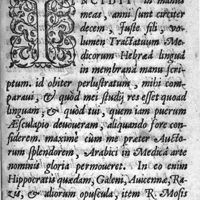 INCIDIT in manus
meas, anni sunt circiter
decem, Juste fili, vo-
lumen Tractatuum Me-
dicorum Hebræa lingua
in membrana manu scri-
ptum. id obiter perlustratum, mihi com-
paravi, & quòd mei studij res esset quoad
linguam, & quòd tui, quem iam puerum
Æsculapio devoueram, aliquando fore con-
siderem. maximè cùm me præter Aucto-
rum splendorem, Arabici in Medica arte
nominis gloria permoueret. In eo enim
Hippocratis quædam, Galeni, Auicennæ, Ra-
sis, & aliorum opuscula, item R. Mosis